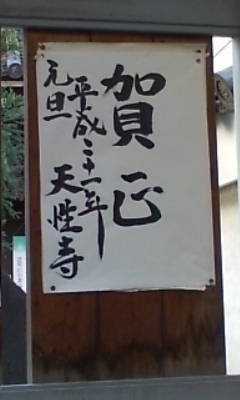 賀正
平成二十一年
元旦
天性寺